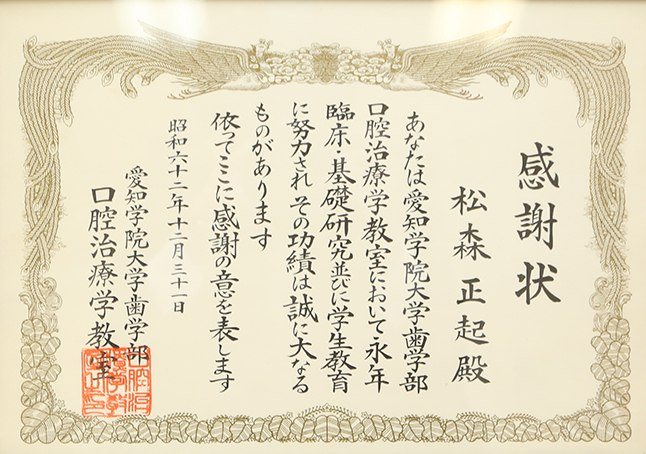 感謝状
松森正起殿
あなたは愛知学院大学歯学部
口腔治療学教室において永年
臨床・基礎研究並びに学生教育
に努力され その功績は誠に大なる
ものがあります
依ってここに感謝の意を表します
昭和六十二年十二月三十一日
愛知学院大学歯学部
口腔治療学教室